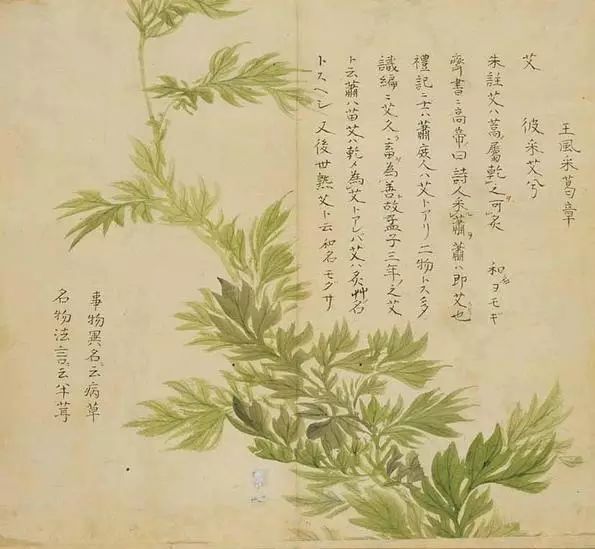 王風采葛章
艾　彼采艾兮
朱註艾ハ蒿屬乾之可灸　和名ヨモギ
齊書ニ高帝曰詩人采蕭蕭ハ即艾也
禮記ニ士ハ蕭庶人ハ艾トアリ二物トス多
識編ニ艾久畜為善故孟子三年之艾
ト云蕭ハ苗艾ハ乾メ為艾トアレバ艾ハ灸艸名
トスヘシ又後世熟艾ト云和名モグサ
事物異名云病草
名物法言云半茸